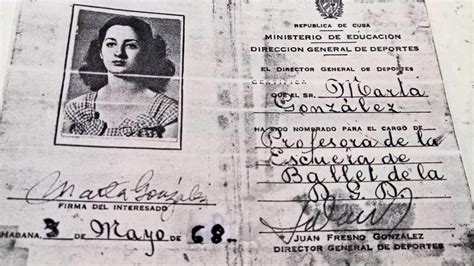 Marta González
FIRMA DEL INTERESADO
HABANA, 3 DE Mayo DE 68-
REPUBLICA DE CUBA
MINISTERIO DE EDUCACION
DIRECCION GENERAL DE DEPORTES
EL DIRECTOR GENERAL DE DEPORTES
CERTIFICA
QUE EL SR. Marta
González
HA SIDO NOMBRADO PARA EL CARGO DE
Profesora de la
Escuela de
Ballet de la
D.G.D.
JUAN FRESNO GONZÁLEZ
DIRECTOR GENERAL DE DEPORTES